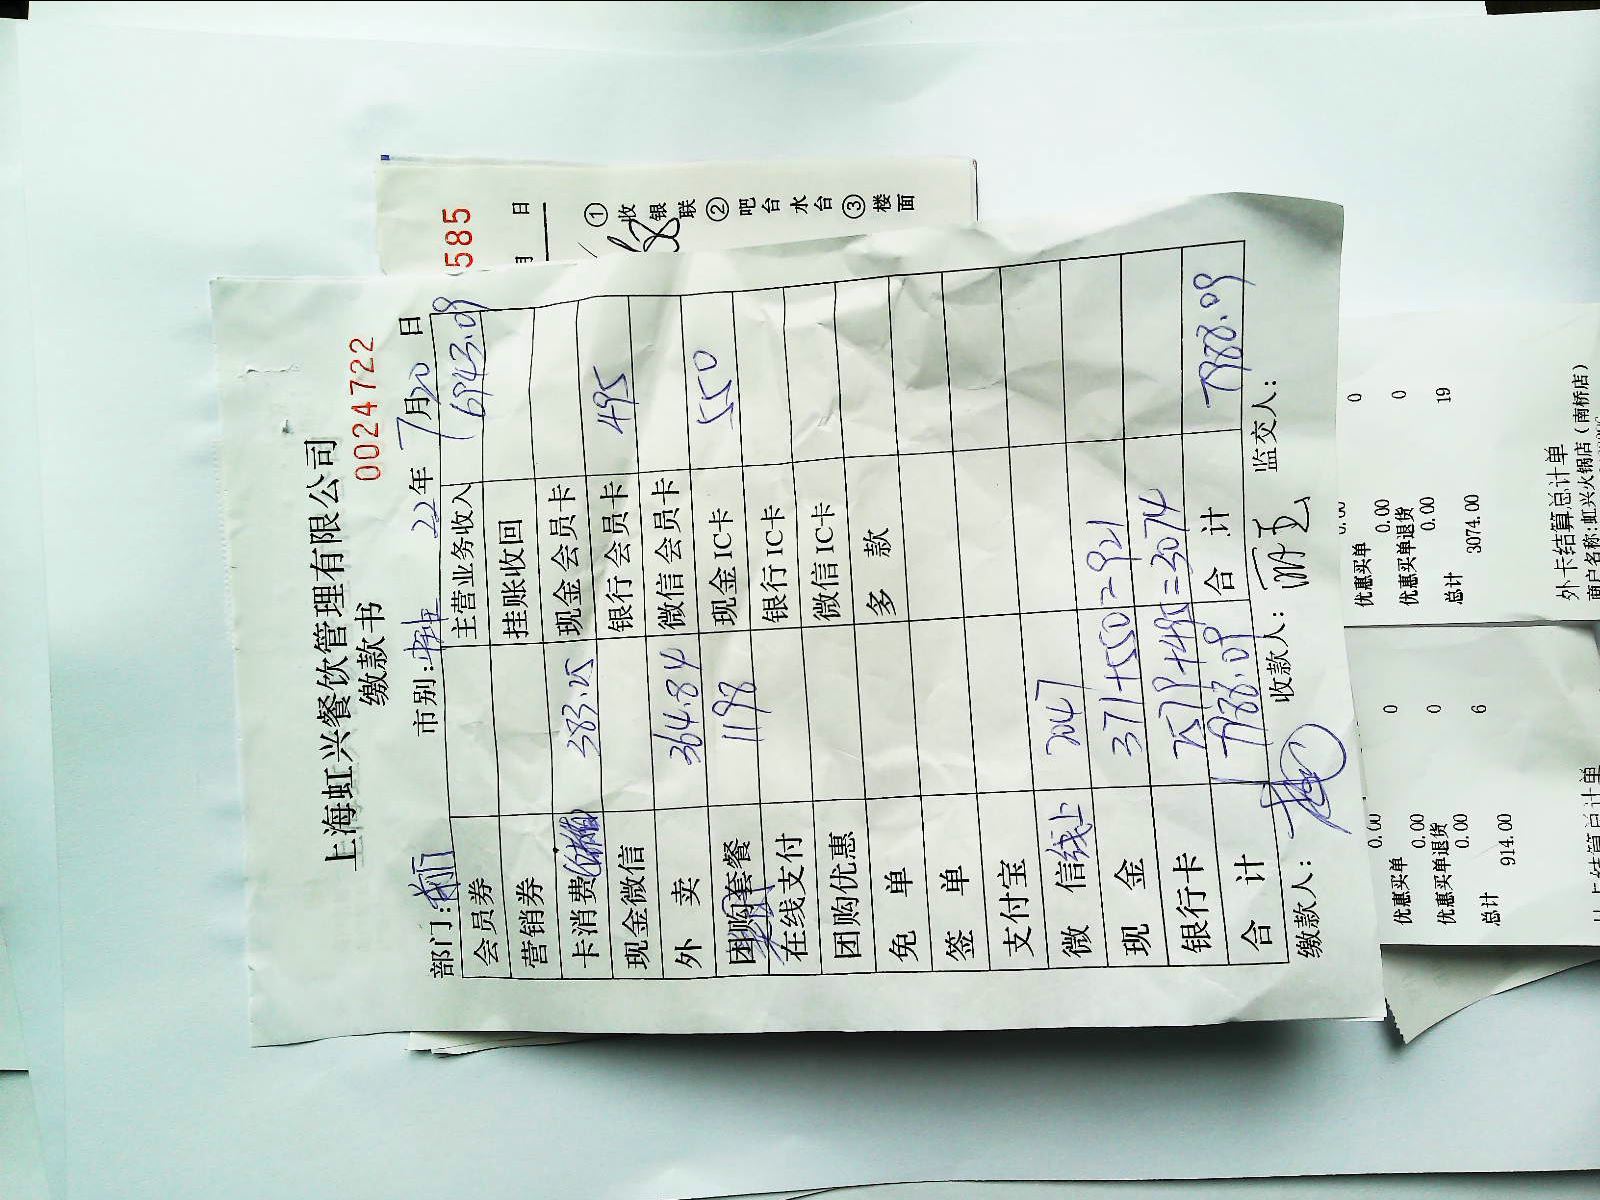 上海虹兴餐饮管理有限公司
缴款书
0024722
部门: 市别: 22年 7月20日
会员券 主营业务收入 6943.09
营销券 挂账收回
卡消费 383.25 现金会员卡
现金微信 银行会员卡 495
外卖 364.84 微信会员卡
团购套餐 1198 现金IC卡 550
在线支付 银行IC卡
团购优惠 微信IC卡
免单 多款
签单
支付宝
微信线上 2047
现金 371+550=921
银行卡 2579+495=3074
合计 7988.09 合计 7988.09
缴款人: 收款人: 监交人:
585
日
①收银联②吧台水台③楼面
优惠买单 0
0.00
优惠买单退货 0
0.00
总计 19
3074.00
外卡结算总计单
商户名称:虹兴火锅店(南桥店)
0.00
优惠买单 0
0.00
优惠买单退货 0
0.00
总计 6
914.00